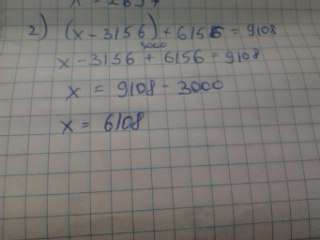 x = 2654
2) (x - 3156) + 6156 = 9108
3000
x - 3156 + 6156 = 9108
x = 9108 - 3000
x = 6108